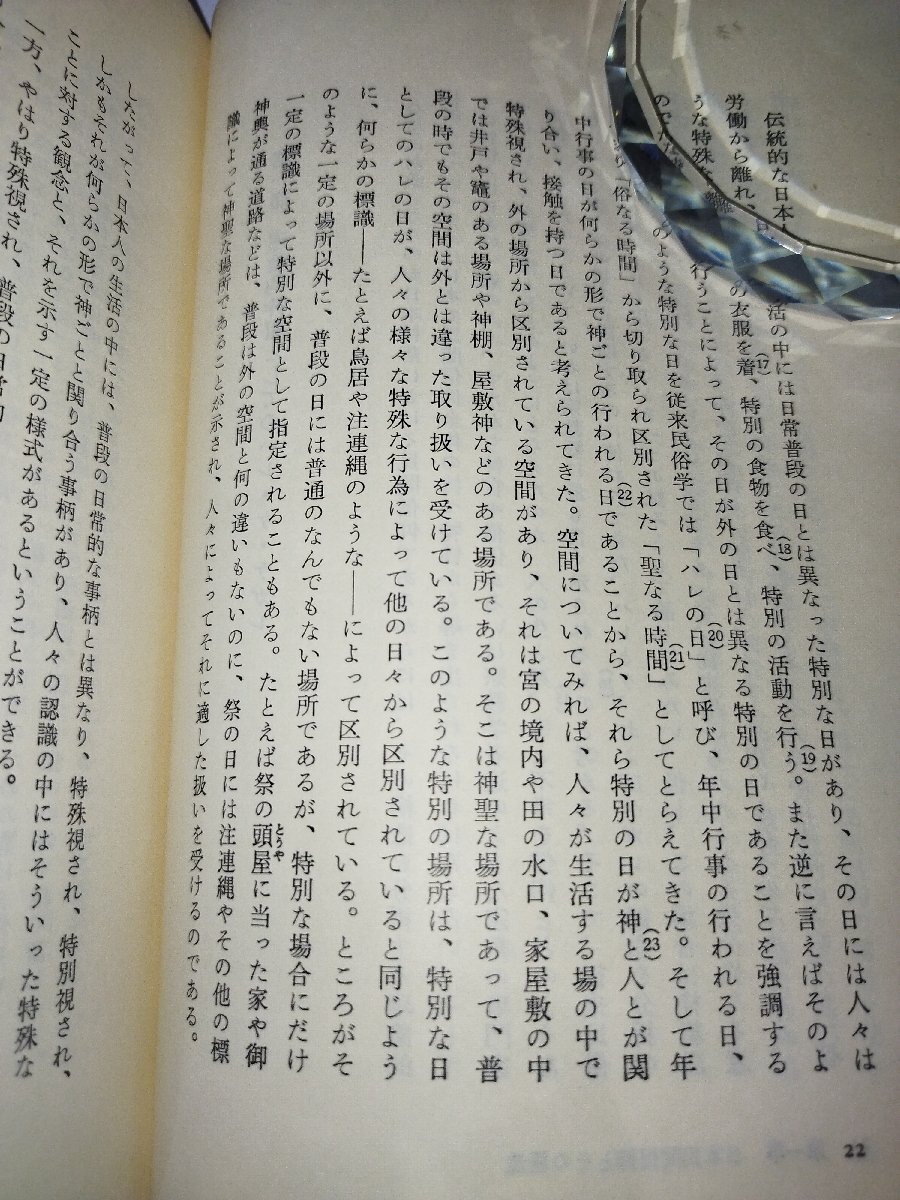 伝統的な日本人 活の中には日常普段の日とは異なった特別な日があり、その日には人々は
労働から離れ、 の衣服を着、(17)特別の食物を食べ、(18)特別の活動を行う。(19)また逆に言えばそのよ
うな特殊な 行うことによって、その日が外の日とは異なる特別の日であることを強調する
のである。 のような特別な日を従来民俗学では「ハレの日」(20)と呼び、年中行事の行われる日、
り「俗なる時間」から切り取られ区別された「聖なる時間」(21)としてとらえてきた。そして年
中行事の日が何らかの形で神ごとの行われる日(22)であることから、それら特別の日が神と人とが関(23)
り合い、接触を持つ日であると考えられてきた。空間についてみれば、人々が生活する場の中で
特殊視され、外の場所から区別されている空間があり、それは宮の境内や田の水口、家屋敷の中
では井戸や竈のある場所や神棚、屋敷神などのある場所である。そこは神聖な場所であって、普
段の時でもその空間は外とは違った取り扱いを受けている。このような特別の場所は、特別な日
としてのハレの日が、人々の様々な特殊な行為によって他の日々から区別されていると同じよう
に、何らかの標識――たとえば鳥居や注連縄のような――によって区別されている。ところがそ
のような一定の場所以外に、普段の日には普通のなんでもない場所であるが、特別な場合にだけ
一定の標識によって特別な空間として指定されることもある。たとえば祭の頭屋(とうや)に当った家や御
神輿が通る道路などは、普段は外の空間と何の違いもないのに、祭の日には注連縄やその他の標
識によって神聖な場所であることが示され、人々によってそれに適した扱いを受けるのである。
22
したがって、日本人の生活の中には、普段の日常的な事柄とは異なり、特殊視され、特別視され、
しかもそれが何らかの形で神ごとと関り合う事柄があり、人々の認識の中にはそういった特殊な
ことに対する観念と、それを示す一定の様式があるということができる。
一方、やはり特殊視され、普段の日常的